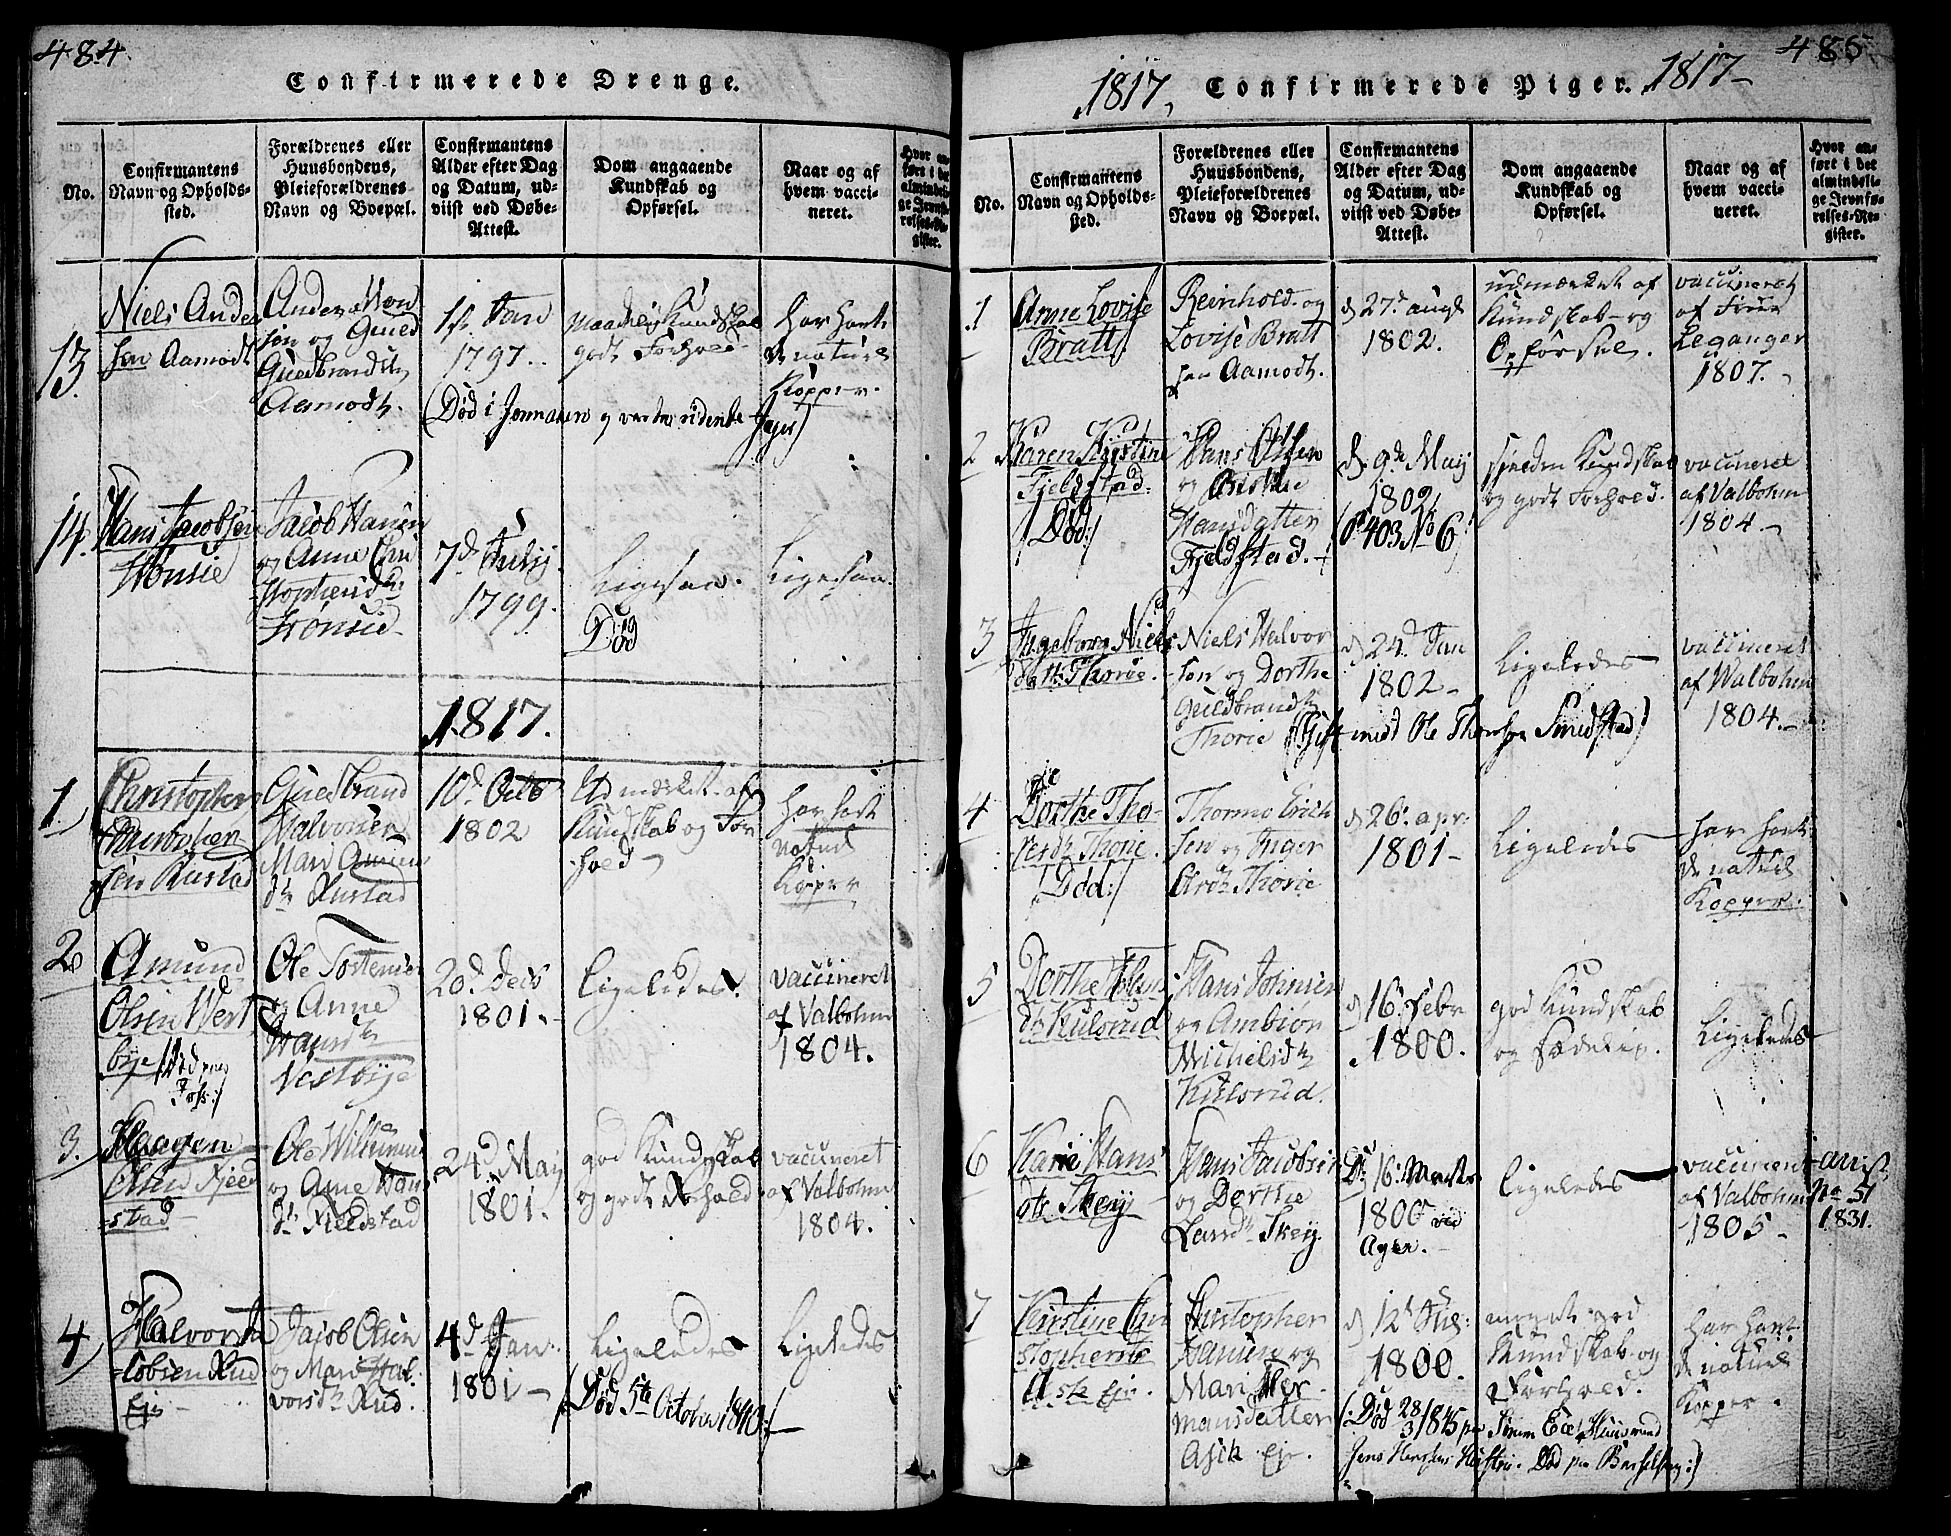 484
Confirmerede Drenge.
No.
Confirmantens
Navn og Opholds-
sted.
Forældrenes eller
Huusbondens,
Pleieforældrenes
Navn og Boepæl.
Confirmantens
Alder efter Dag
og Datum, ud-
viist ved Døbe-
Attest.
Dom angaaende
Kundskab og
Opførsel.
Naar og af
hvem vacci-
neret.
Hvor an-
ført i det
almindeli-
ge Jevnfø-
relses-Re-
gister.
13.
Niels Ander
sen Aamodt
Anders
søn og Guld
Guldbrandsdtr
Aamodt.
1st Jan
1797.
maadelig Kundskab
godt Forhold
har havt
de naturl
Kopper.
(Død i Jonnasen og
14.
Hans Jacobsen
Trønsie
Jacob Hansen
og Anne Chri
stophersdtr
Trønsie
7d July
1799.
Ligesaa.
Død
Ligesaa.
1817.
1.
Christopher
Halvorsen
Rustad
Guldbrand
Halvorsen
Mari Amun
dtr Rustad
10d Octb
1802
Udmærket af
Kundskab og For
hold
har havt
naturl
Kopper
2
Amund
Olsen Vest
bye
Ole Tostensen
og Anne
Hansdtr
Vestbye
20d Decb
1801.
Ligeledes.
vaccineret
af Valbohm
1804.
3.
Haagen
Olsen Fjeld
stad
Ole Willumsen
og Anne Han
dtr Fjeldstad
24d May
1801.
god Kundskab
og godt Forhold
vaccineret
af Valbohm
1804.
4
Halvor Ja
cobsen Rud
Eje
Jacob Olsen
og Mari Hal
vorsdtr Rud.
4d Jan.
1801
Ligeledes
Ligeledes
(Død 5te October 1840:)
485
1817, Confirmerede Piger. 1817
No.
Confirmantens
Navn og Opholds-
sted.
Forældrenes eller
Huusbondens,
Pleieforældrenes
Navn og Boepæl.
Confirmantens
Alder efter Dag
og Datum, ud-
viist ved Døbe-
Attest.
Dom angaaende
Kundskab og
Opførsel.
Naar og af
hvem vacci-
neret.
Hvor an-
ført i det
almindeli-
ge Jevnfø-
relses-Re-
gister.
1
Anne Lovise
Bratt
Reinhold og
Lovise Bratt
paa Aamodt.
d 27d augt
1802.
udmærket af
Kundskab og
Opførsel.
vaccineret
af Frue
Leganger
1807.
2
Karen Kirstine
Fjeldstad
/Død/
Hans Olsen
og Birthe
Hansdatter
Fjeldstad.
d. 9de May
1802
(P 403 No 6)
sjelden Kundskab
og godt Forhold.
vaccineret
af Valbohm
1804.
3
Ingeborg Niels
datter Thorie.
Niels Halvor
sen og Dorthe
Guldbrandsdtr
Thorie
d 24d Jan
1802
Ligeledes
vaccineret
af Walbohm
1804.
(Gift med Ole Thorsen Smedstad)
4
Dorthe Tho
resdtr Thorie.
/Død:/
Thormo Erich
sen og Inger
Thorie
d 26. apr:
1801
Ligeledes
har havt
de naturl
Kopper.
5
Dorthe Hans
dtr Kulsrud
Hans Johnsen
og Ambior
Michelsdtr
Kulsrud.
d 16. Febr
1800.
god Kundskab
og sædelig.
Ligeledes
6
Karie Hans
dtr Skeij
Hans Jacobsen
og Dorthe
Larsdtr Skeij
D. 16. Marts
1800 ved
Ager.
Ligeledes
vaccineret
af Valbohm
1805
No 51
1831.
7
Kirstine Chri
stophersdtr
Ask Eje.
Christopher
Hansen og
Mari Her
mansdatter
Asch Eje.
d 12d Aug:
1800.
meget god
Kundskab og
Forhold.
har havt
de naturl
Kopper.
(:Død 28/3 1845
Jens Hansens Død paa